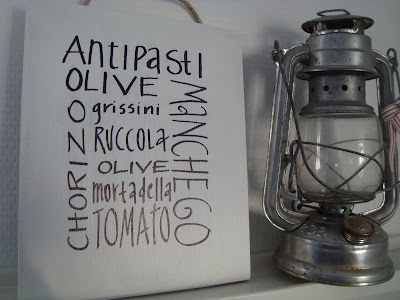 Antipasti
OLIVE
grissini
RUCCOLA
OLIVE
mortadella
TOMATO
CHORIZO
MANCHEGO